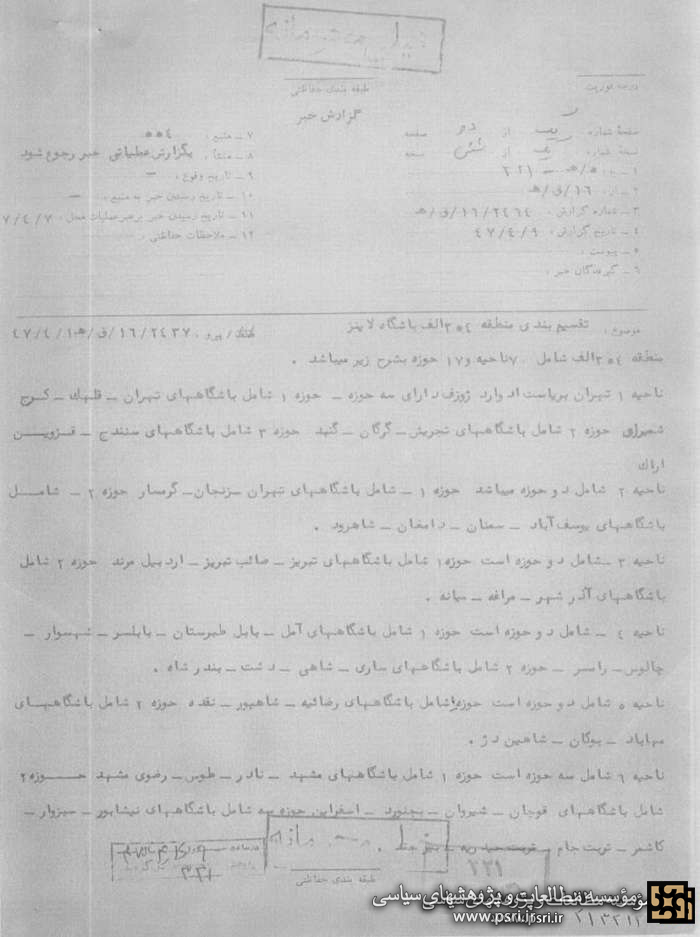 خیلی محرمانه
درجه فوریت
طبقه بندی حفاظتی
گزارش خبر
صفحه شماره یک از دو صفحه
نسخه شماره از شش نسخه
۱ - به : ۵/ﻫ - ۲۲۱
۲ - از : ۱۶/ق/ﻫ
۳ - شماره گزارش : ۱۶/۲۴۶۴/ق/ﻫ
۴ - تاریخ گزارش : ۴۷/۴/۹
۵ - پیوست :
۶ - گیرندگان خبر :
۷ - منبع : ۴۰۰
۸ - منشأ : بگزارش عملیاتی خبر رجوع شود
۹ - تاریخ وقوع : -
۱۰ - تاریخ رسیدن خبر به منبع : -
۱۱ - تاریخ رسیدن خبر برهبر عملیات محل : ۷/۴/۷
۱۲ - ملاحظات حفاظتی :
موضوع : تقسیم بندی منطقه ۳۰۴ الف باشگاه لاینز
پیرو : ۱۶/۲۴۳۷/ق/ﻫ ۴۷/۴/۱
منطقه ۳۰۴ الف شامل ۷ ناحیه و ۱۷ حوزه بشرح زیر میباشد .
ناحیه ۱ تهران بریاست ادوارد ژوزف دارای سه حوزه - حوزه ۱ شامل باشگاههای تهران - قلهک - کرج
شمیران حوزه ۲ شامل باشگاههای تجریش - گرگان - گنبد حوزه ۳ شامل باشگاههای سنندج - قزوین
اراک
ناحیه ۲ شامل دو حوزه میباشد حوزه ۱ - شامل باشگاههای تهران - زنجان - گرمسار حوزه ۲ - شامل
باشگاههای یوسف آباد - سمنان - دامغان - شاهرود .
ناحیه ۳ - شامل دو حوزه است حوزه ۱ شامل باشگاههای تبریز - صائب تبریز - اردبیل مرند حوزه ۲ شامل
باشگاههای آذر شهر - مراغه - میانه .
ناحیه ۴ - شامل دو حوزه است حوزه ۱ شامل باشگاههای آمل - بابل طبرستان - بابلسر - شهسوار -
چالوس - رامسر - حوزه ۲ شامل باشگاههای ساری - شاهی - دشت - بندر شاه .
ناحیه ۵ شامل دو حوزه است حوزه ۱ شامل باشگاههای رضائیه - شاهپور - نقده حوزه ۲ شامل باشگاههای
مهاباد - بوکان - شاهین دژ .
ناحیه ۶ شامل سه حوزه است حوزه ۱ شامل باشگاههای مشهد - نادر - طوس - رضوی مشهد حوزه ۲
شامل باشگاههای قوچان - شیروان - بجنورد - اسفراین حوزه سه شامل باشگاههای نیشابور - سبزوار -
کاشمر - تربت جام - تربت حیدریه -
خیلی محرمانه
طبقه بندی حفاظتی
۳۳۱
۲۲۱
مؤسسه مطالعات و پژوهشهای سیاسی
www.psri.ir